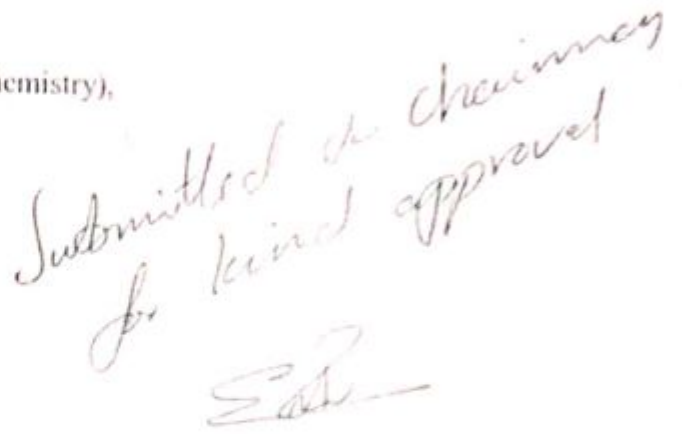 hemistry),
Submitted to Chairman
for kind approval